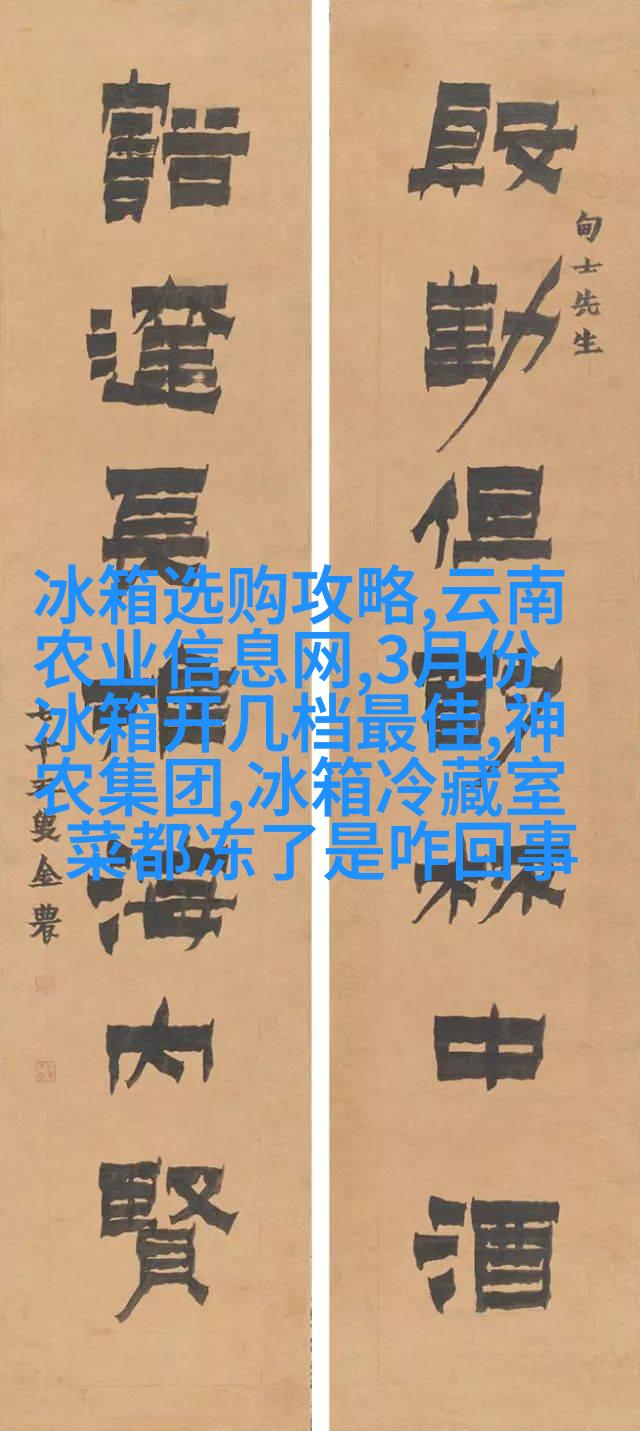 殷勤但林中酒
甸士先生
豁達長海内賢
七十叟金農
冰箱选购攻略,云南
农业信息网,3月份
冰箱开几档最佳,神
农集团,冰箱冷藏室
菜都冻了是咋回事